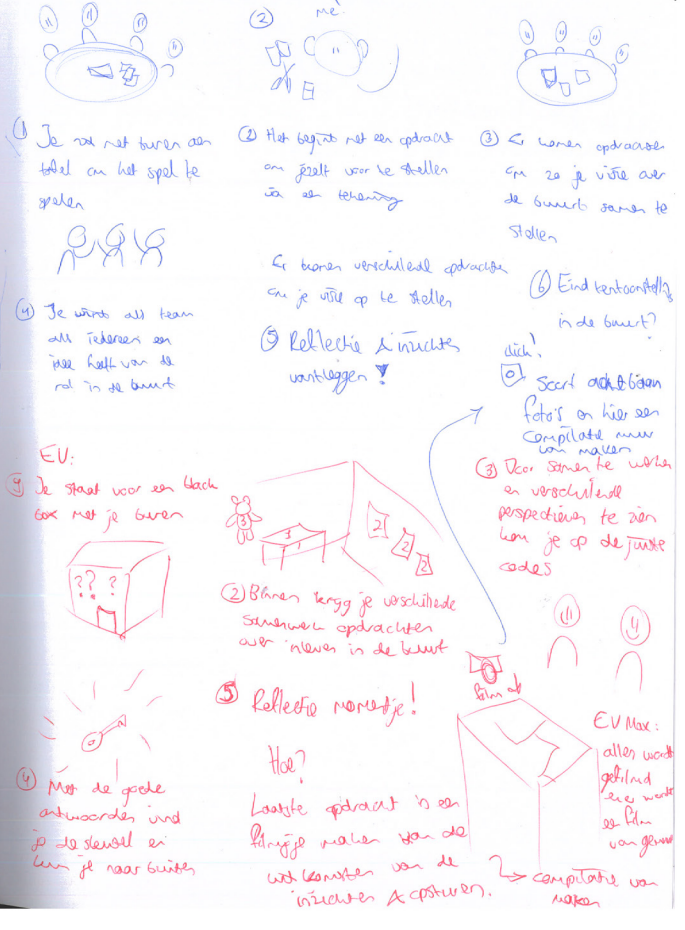 ② Me!
① Je zit met buren aan
tafel om het spel te
spelen
② Het begint met een opdracht
om jezelf voor te stellen
via een tekening
③ Er komen opdrachten
om zo je visie over
de buurt samen te
stellen
Er komen verschillende opdrachten
om je visie op te stellen
④ Je wint als team
als iedereen een
idee heeft van de
rol in de buurt
⑤ Reflectie & inzichten
vastleggen!
⑥ Eindtentoonstelling
in de buurt?
click!
Soort
foto's en hier een
compilatie muur
van maken
EV:
Je staat voor een black
box met je buren
? ? ?
3
3
1
2
2
2
② Binnen krijg je verschillende
samenwerk opdrachten
over in de buurt
③ Door samen te werken
en verschillende
perspectieven te zien
kom je op de juiste
codes
④ Met de goede
antwoorden vind
je de sleutel en
kun je naar buiten
⑤ Reflectie momentje!
Hoe?
Laatste opdracht is een
filmpje maken van de
van de
inzichten & opsturen.
film af
EV Max:
alles wordt
gefilmd
en er wordt
een film
van gemaakt
compilatie van
maken